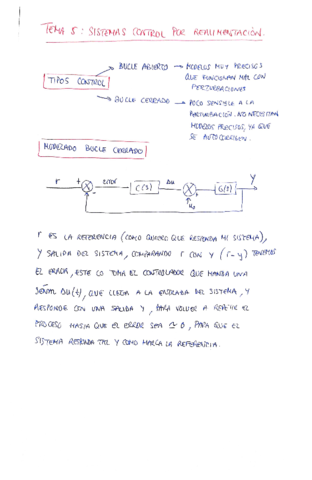 TEMA 5: SISTEMAS CONTROL POR REALIMENTACIÓN.
TIPOS CONTROL
BUCLE ABIERTO → MODELOS MUY PRECISOS
QUE FUNCIONAN MAL CON
PERTURBACIONES
BUCLE CERRADO → POCO SENSIBLE A LA
PERTURBACIÓN. NO NECESITAN
MODELOS PRECISOS, YA QUE
SE AUTOCORRIGEN.
MODELADO BUCLE CERRADO
r + - error C(s) Δu + + G(s) Y
r ES LA REFERENCIA (COMO QUIERO QUE RESPONDA MI SISTEMA),
Y SALIDA DEL SISTEMA, COMPARANDO r CON Y (r-y) TENEMOS
EL ERROR, ESTE LO TOMA EL CONTROLADOR QUE MANDA UNA
SEÑAL Δu(t), QUE LLEGA A LA ENTRADA DEL SISTEMA, Y
RESPONDE CON UNA SALIDA Y, PARA VOLVER A REPETIR EL
PROCESO HASTA QUE EL ERROR SEA ≃ 0, PARA QUE EL
SISTEMA RESPONDA TAL Y COMO MARCA LA REFERENCIA.